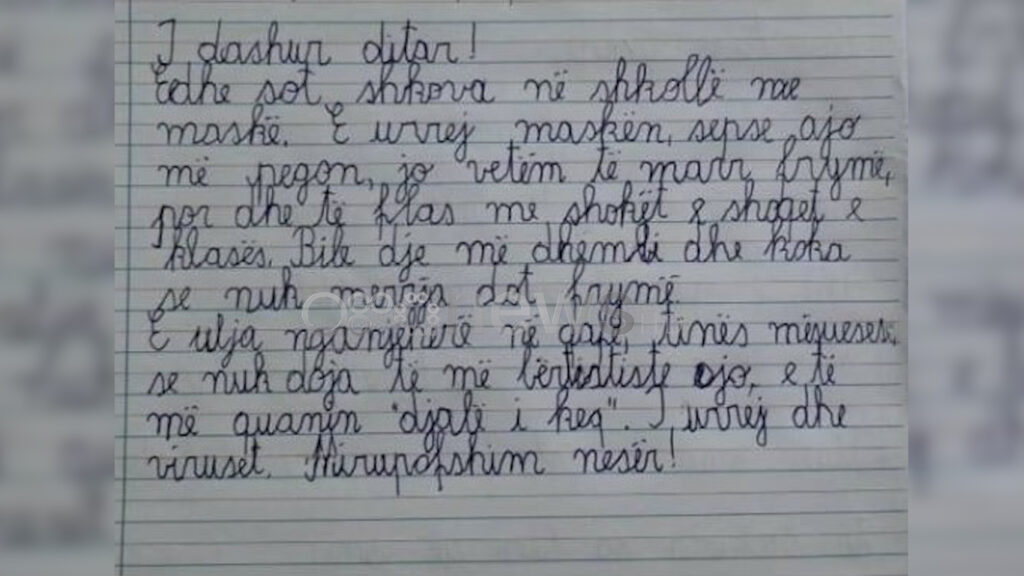 I dashur ditar!
Edhe sot shkova në shkollë me
maskë. E urrej maskën, sepse ajo
më pegon, jo vetëm të marr frymë,
por dhe të flas me shokët e shoqet e
klasës. Bile dje më dhembi dhe koka
se nuk merrja dot frymë.
E ulja nganjëherë në qafë, tinës mësueses,
se nuk doja të më bërtiste ajo, e të
më quanin "djalë i keq". I urrej dhe
viruset. Mirupafshim nesër!
news